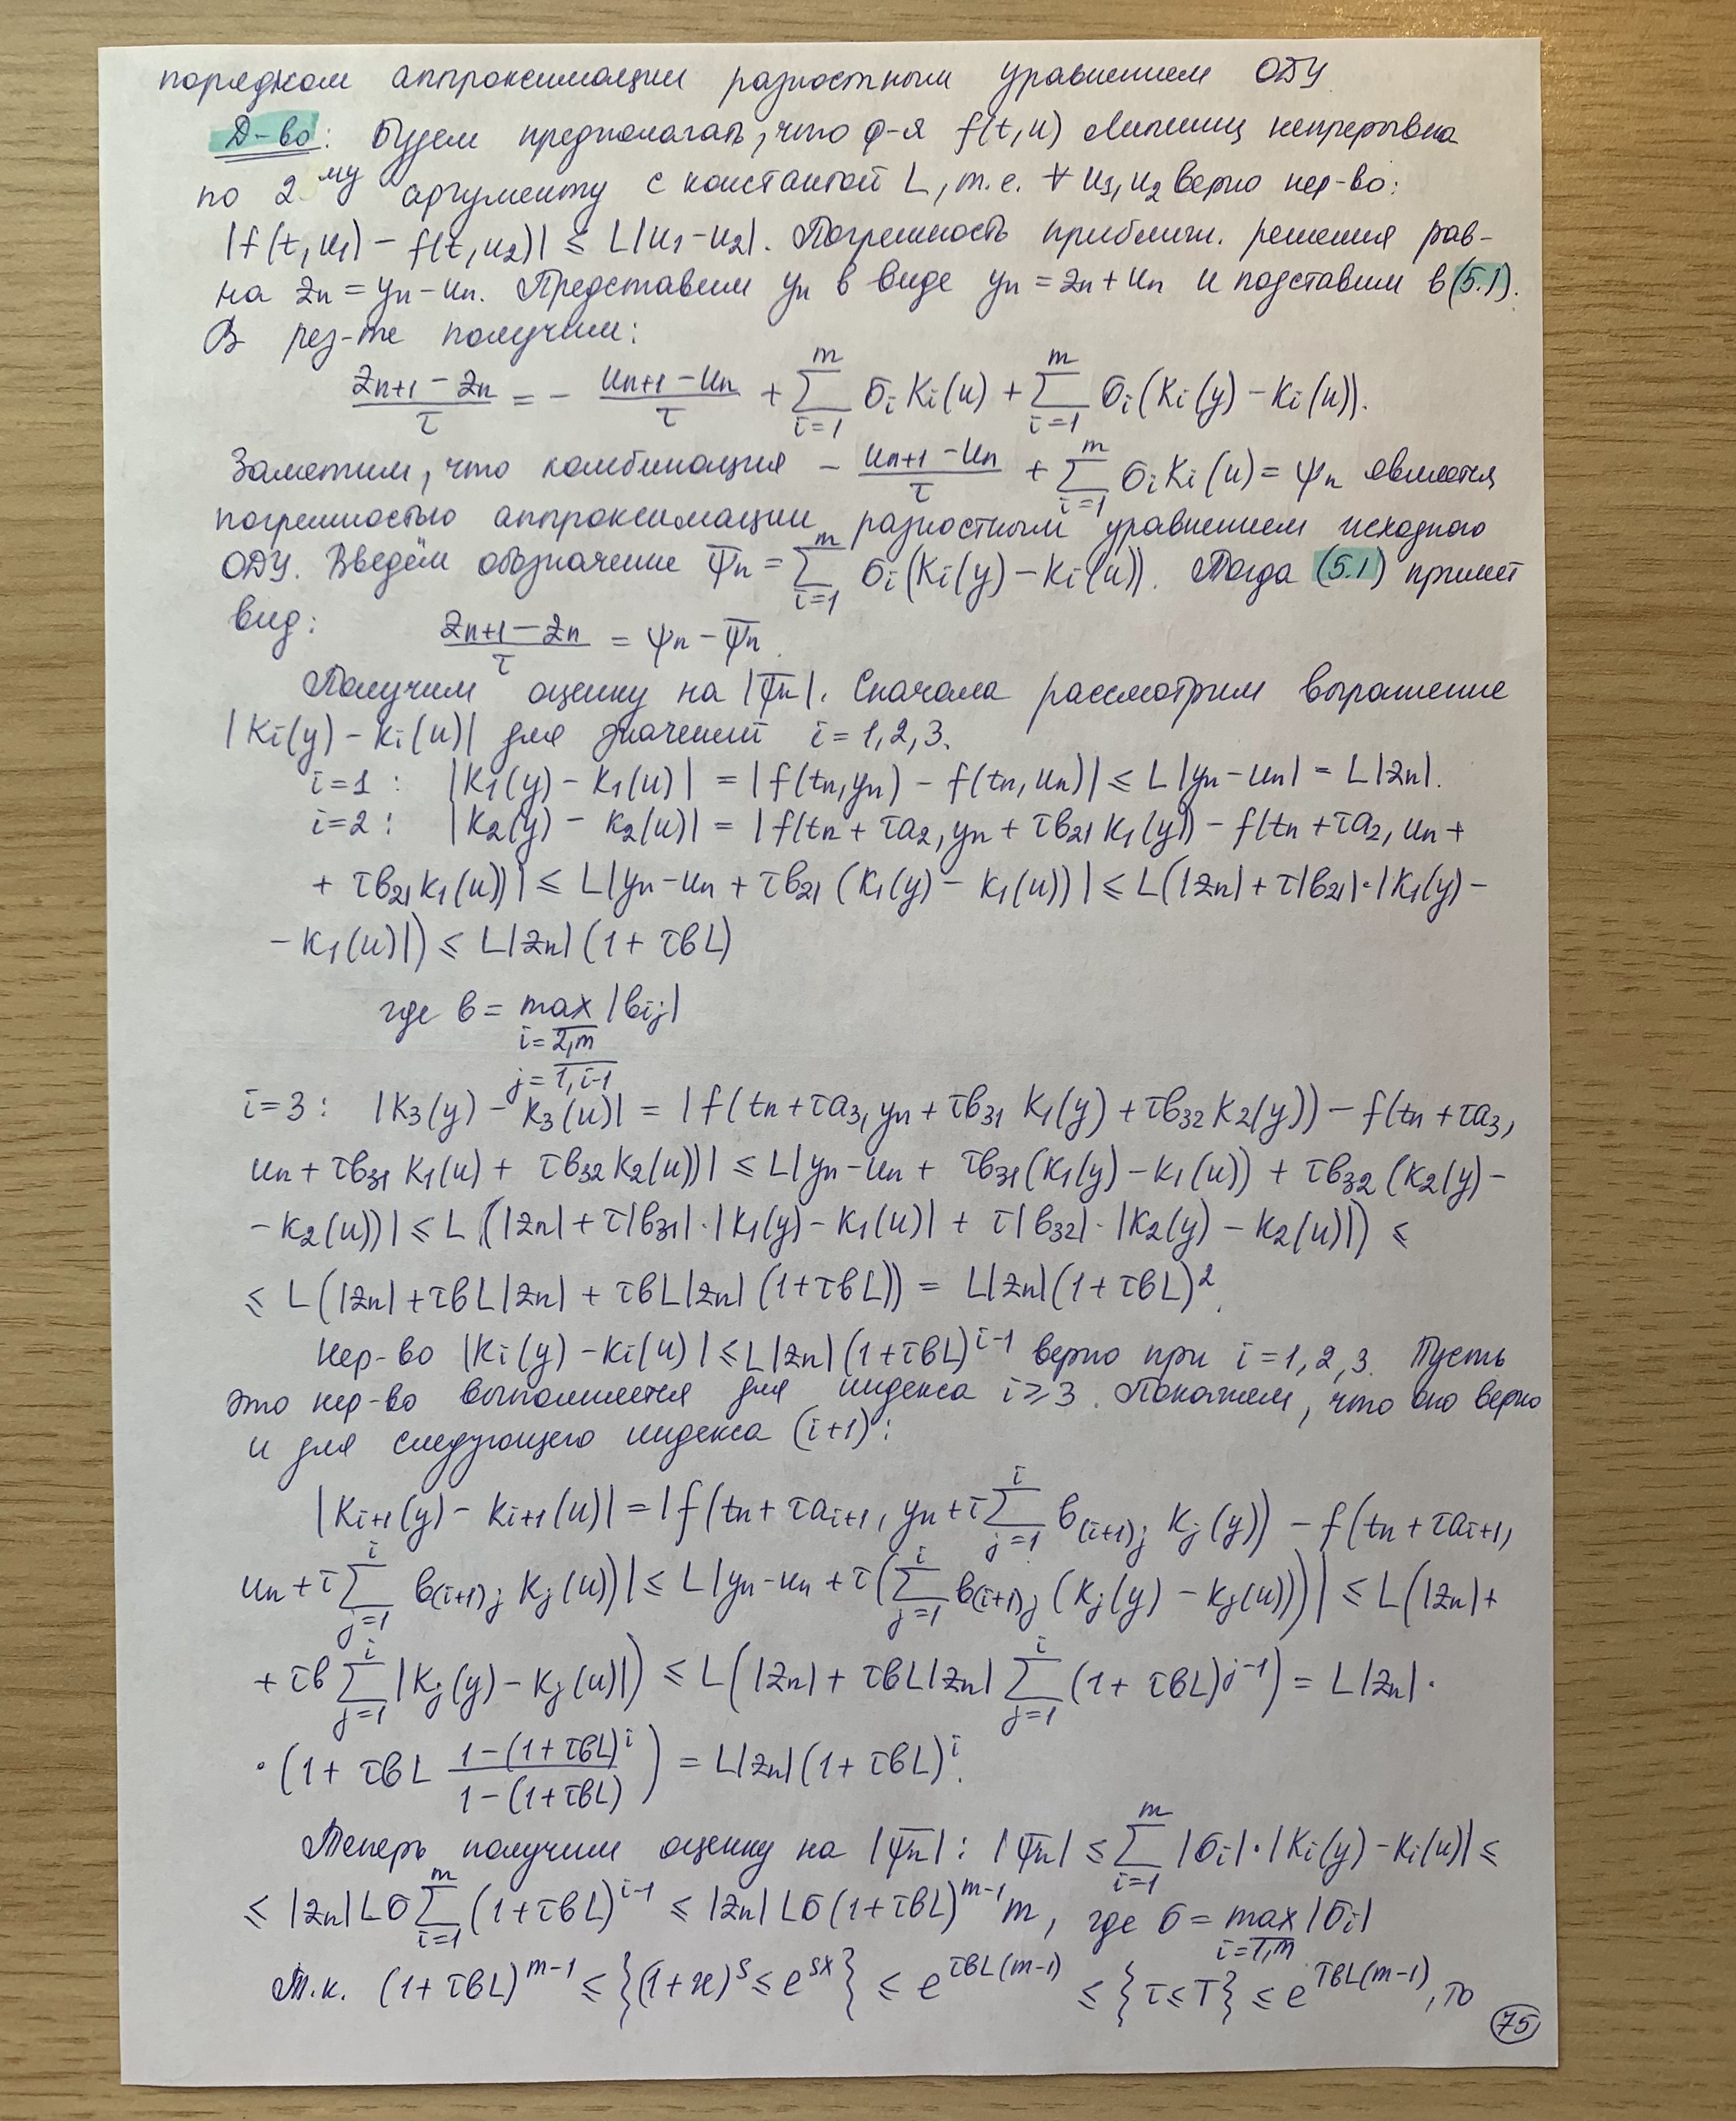 порядком аппроксимации разностным уравнением ОДУ
Д-во: Будем предполагать, что ф-я f(t,u) Липшиц непрерывна
по 2му аргументу с константой L, т.е. ∀ u₁,u₂ верно нер-во:
|f(t,u₁) − f(t,u₂)| ⩽ L|u₁−u₂|. Погрешность приближ. решения рав-
на zn = yn − un. Представим yn в виде yn = zn + un и подставим в (5.1).
В рез-те получим:
(zn+1 − zn)/τ = − (un+1 − un)/τ + ∑_{i=1}^{m} σi Ki(u) + ∑_{i=1}^{m} σi(Ki(y) − Ki(u)).
Заметим, что комбинация − (un+1 − un)/τ + ∑_{i=1}^{m} σi Ki(u) = ψn является
погрешностью аппроксимации разностным уравнением исходного
ОДУ. Введём обозначение ψ̄n = ∑_{i=1}^{m} σi(Ki(y) − Ki(u)). Тогда (5.1) примет
вид: (zn+1 − zn)/τ = ψn − ψ̄n.
Получим оценку на |ψ̄n|. Сначала рассмотрим выражение
|Ki(y) − Ki(u)| для значений i = 1,2,3.
i=1 : |K₁(y) − K₁(u)| = |f(tn,yn) − f(tn,un)| ⩽ L|yn − un| = L|zn|.
i=2 : |K₂(y) − K₂(u)| = |f(tn + τa₂, yn + τb₂₁K₁(y)) − f(tn + τa₂, un +
+ τb₂₁K₁(u))| ⩽ L|yn − un + τb₂₁(K₁(y) − K₁(u))| ⩽ L(|zn| + τ|b₂₁|·|K₁(y) −
− K₁(u)|) ⩽ L|zn|(1 + τbL)
где b = max |bij|
i=2,m
j=1,i-1
i=3 : |K₃(y) − K₃(u)| = |f(tn + τa₃, yn + τb₃₁K₁(y) + τb₃₂K₂(y)) − f(tn + τa₃,
un + τb₃₁K₁(u) + τb₃₂K₂(u))| ⩽ L|yn − un + τb₃₁(K₁(y) − K₁(u)) + τb₃₂(K₂(y) −
− K₂(u))| ⩽ L(|zn| + τ|b₃₁|·|K₁(y) − K₁(u)| + τ|b₃₂|·|K₂(y) − K₂(u)|) ⩽
⩽ L(|zn| + τbL|zn| + τbL|zn|(1+τbL)) = L|zn|(1 + τbL)².
Нер-во |Ki(y) − Ki(u)| ⩽ L|zn|(1+τbL)^{i-1} верно при i = 1,2,3. Пусть
это нер-во выполняется для индекса i ⩾ 3. Покажем, что оно верно
и для следующего индекса (i+1):
|Ki+1(y) − Ki+1(u)| = |f(tn + τai+1, yn + τ∑_{j=1}^{i} b(i+1)j Kj(y)) − f(tn + τai+1,
un + τ∑_{j=1}^{i} b(i+1)j Kj(u))| ⩽ L|yn − un + τ(∑_{j=1}^{i} b(i+1)j (Kj(y) − Kj(u)))| ⩽ L(|zn| +
+ τb∑_{j=1}^{i} |Kj(y) − Kj(u)|) ⩽ L(|zn| + τbL|zn| ∑_{j=1}^{i} (1 + τbL)^{j-1}) = L|zn| ·
· (1 + τbL (1−(1+τbL)^i)/(1−(1+τbL))) = L|zn|(1 + τbL)^i.
Теперь получим оценку на |ψ̄n| : |ψ̄n| ⩽ ∑_{i=1}^{m} |σi|·|Ki(y) − Ki(u)| ⩽
⩽ |zn|Lσ∑_{i=1}^{m} (1+τbL)^{i-1} ⩽ |zn|Lσ(1+τbL)^{m-1} m, где σ = max_{i=1,m} |σi|
Т.к. (1+τbL)^{m-1} ⩽ {(1+x)^s ⩽ e^{sx}} ⩽ e^{τbL(m-1)} ⩽ {τ ⩽ T} ⩽ e^{TbL(m-1)}, то
75